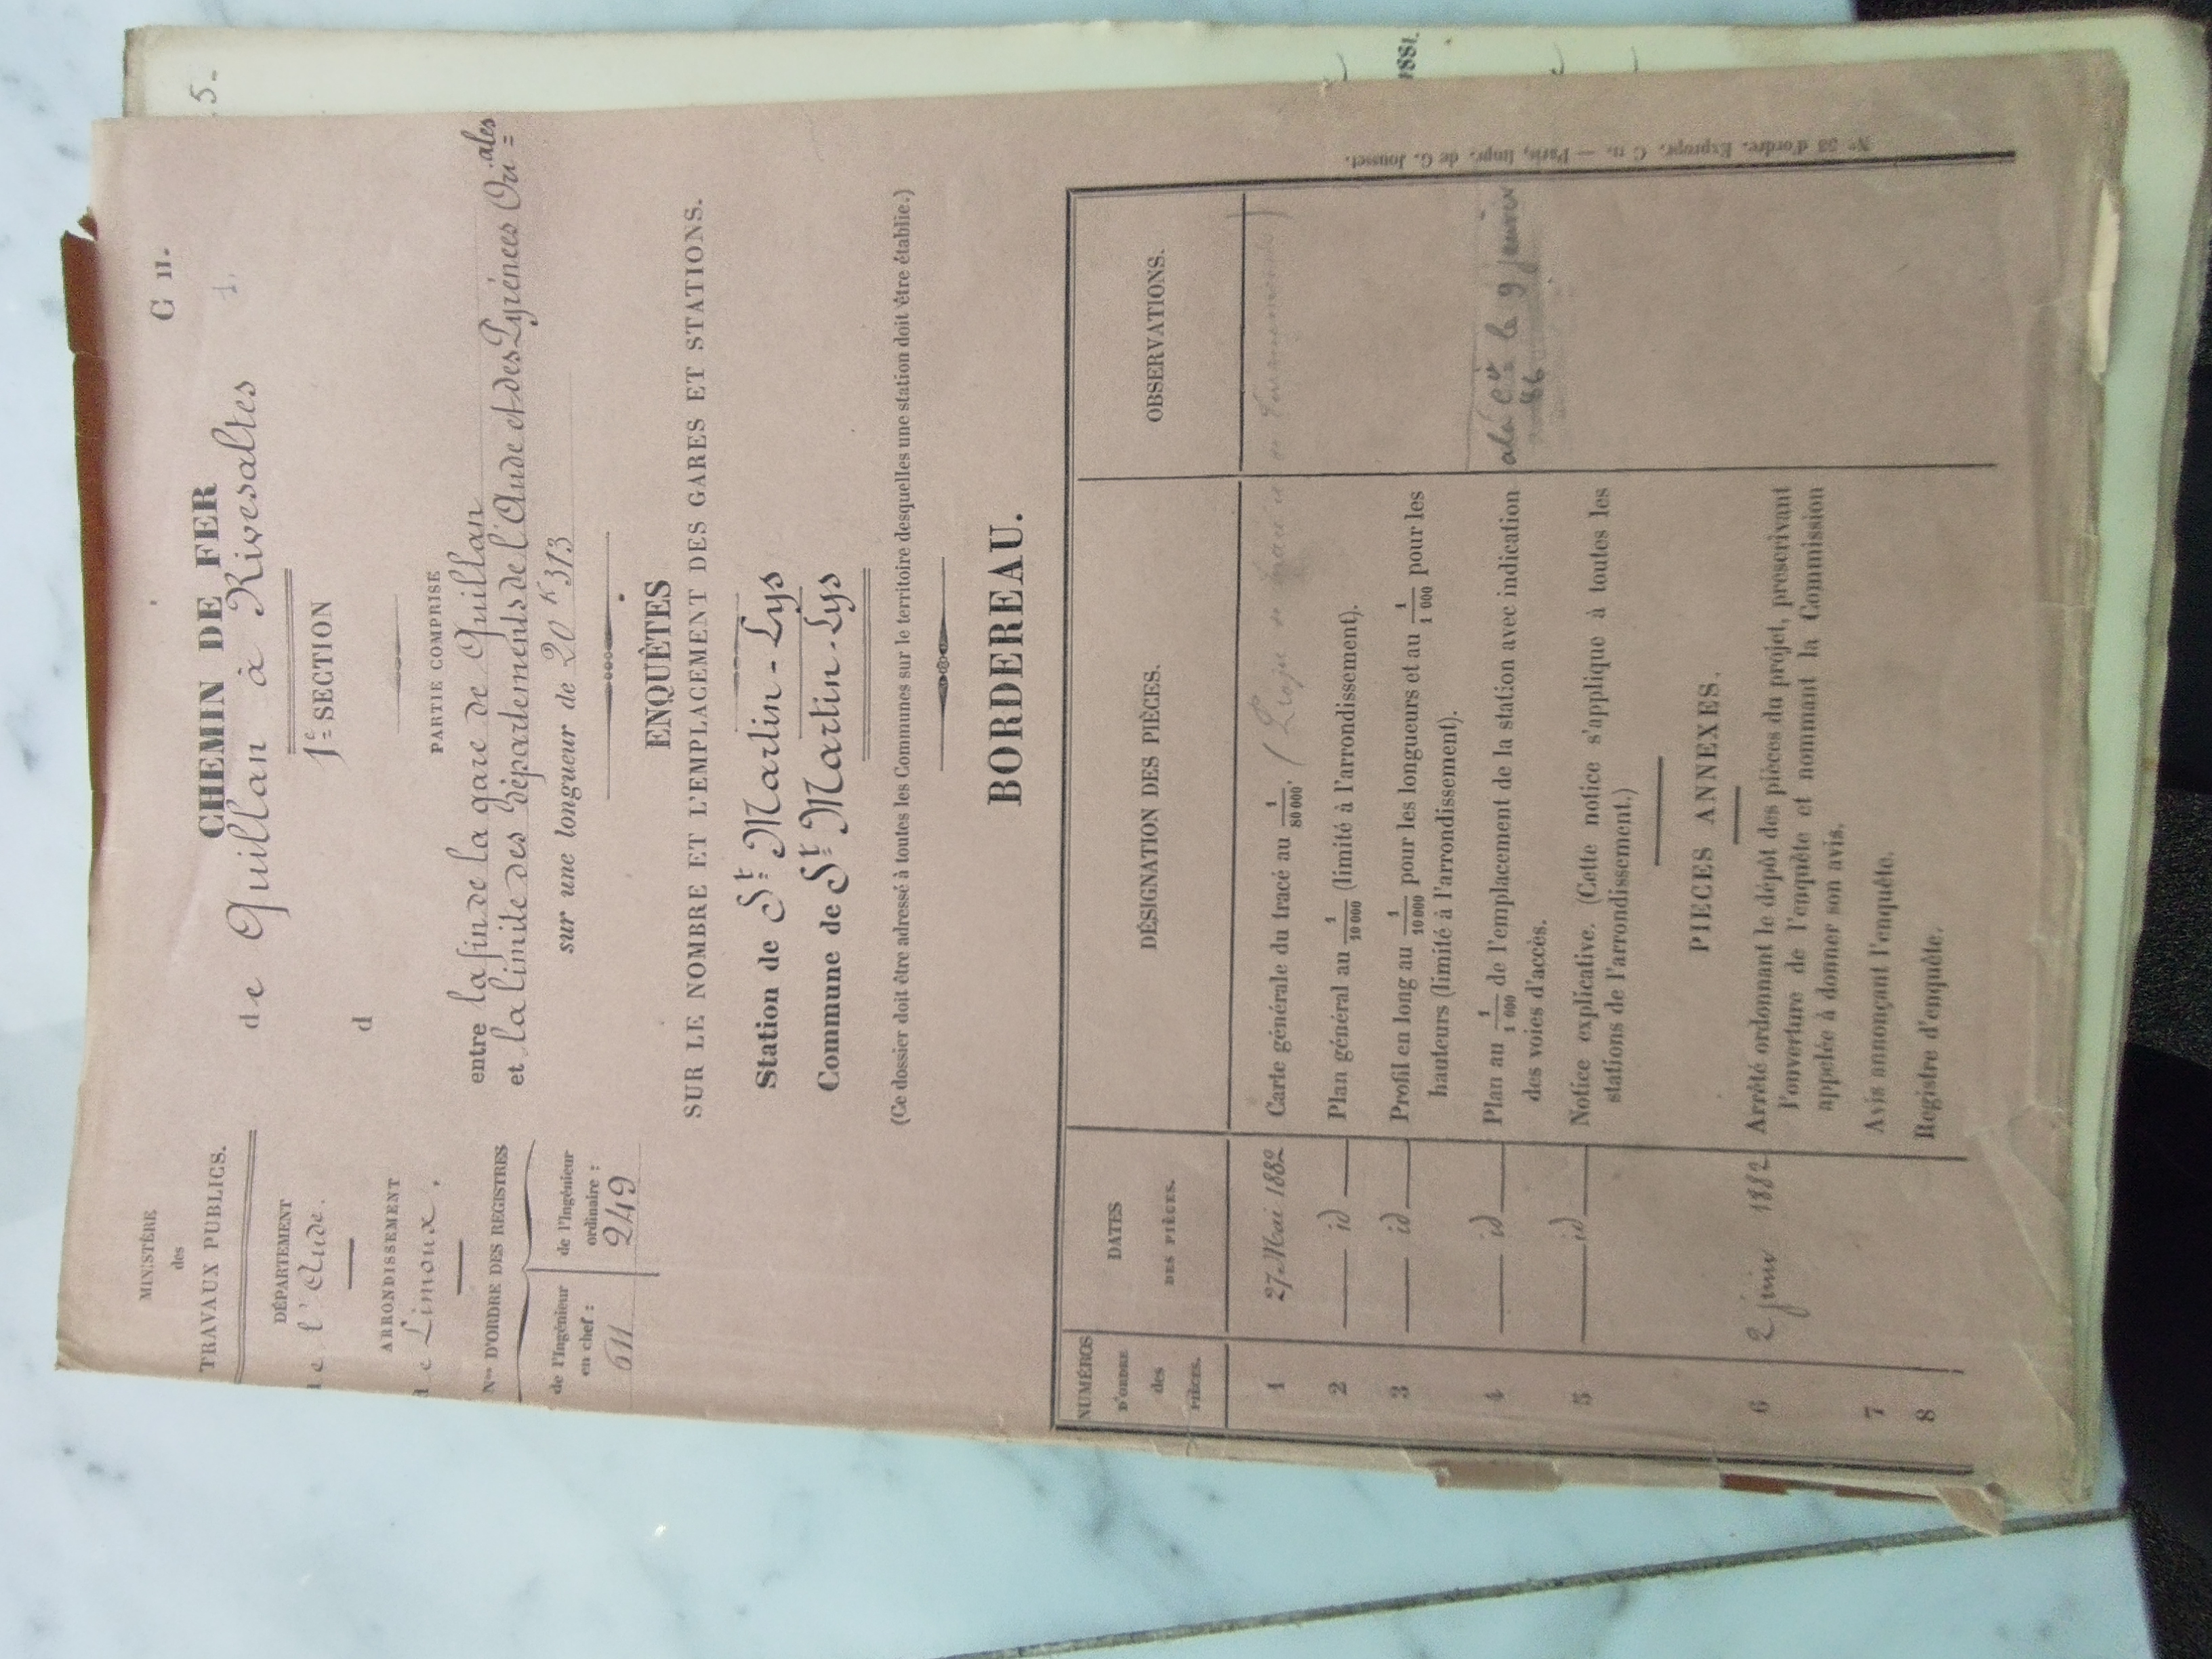 MINISTÈRE
des
TRAVAUX PUBLICS.
DÉPARTEMENT
de l'Aude.
ARRONDISSEMENT
de Limoux.
Nos D'ORDRE DES REGISTRES
de l'Ingénieur
en chef :
611
de l'Ingénieur
ordinaire :
249
C 11.
1.
CHEMIN DE FER
de Quillan à Rivesaltes
1e SECTION
d
PARTIE COMPRISE
entre la fin de la gare de Quillan
et la limite des départements de l'Aude et des Pyrénées Oriales
sur une longueur de 20 K 313
ENQUÊTES
SUR LE NOMBRE ET L'EMPLACEMENT DES GARES ET STATIONS.
Station de St Martin-Lys
Commune de St Martin-Lys
(Ce dossier doit être adressé à toutes les Communes sur le territoire desquelles une station doit être établie.)
BORDEREAU.
NUMÉROS
D'ORDRE
des
PIÈCES.
DATES
DES PIÈCES.
DÉSIGNATION DES PIÈCES.
OBSERVATIONS.
1 27 Mai 1882 Carte générale du tracé au 1/80 000. (Projet de tracé et de )
2 id Plan général au 1/10 000 (limité à l'arrondissement).
3 id Profil en long au 1/10 000 pour les longueurs et au 1/1 000 pour les
hauteurs (limité à l'arrondissement).
4 id Plan au 1/1 000 de l'emplacement de la station avec indication le 9 janvier
des voies d'accès. 86
5 id Notice explicative. (Cette notice s'applique à toutes les
stations de l'arrondissement.)
PIECES ANNEXES.
6 2 juin 1882 Arrêté ordonnant le dépôt des pièces du projet, prescrivant
l'ouverture de l'enquête et nommant la Commission
appelée à donner son avis.
7 Avis annonçant l'enquête.
8 Registre d'enquête.
No 53 d'ordre. Expropr. C 11. — Paris, Impr. de G. Jousset.
5.
1881.